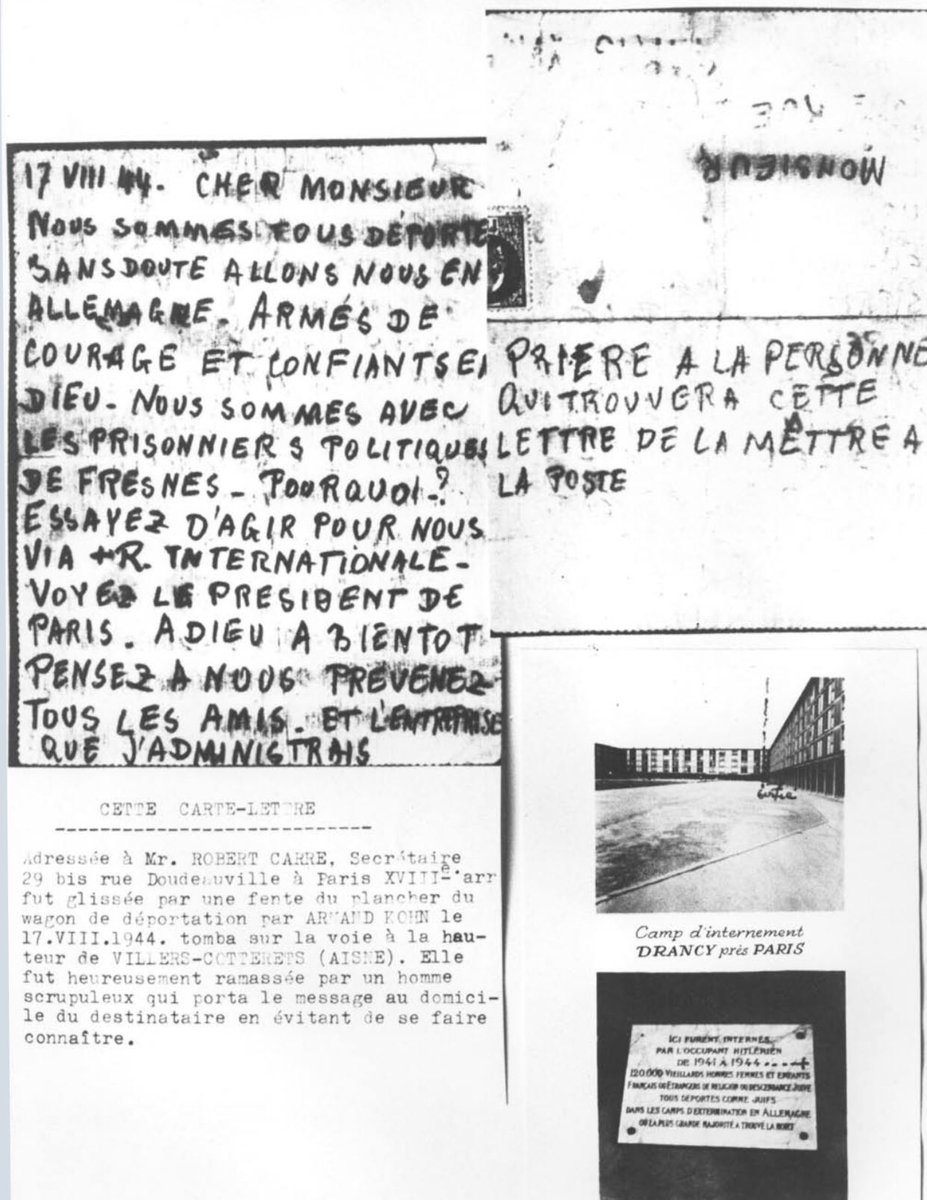 17 VIII 44. CHER MONSIEUR
NOUS SOMMES TOUS DÉPORTE
SANS DOUTE ALLONS NOUS EN
ALLEMAGNE. ARMÉS DE
COURAGE ET CONFIANTS EN
DIEU. NOUS SOMMES AVEC
LES PRISONNIERS POLITIQUES
DE FRESNES. POURQUOI.?
ESSAYEZ D'AGIR POUR NOUS
VIA +R. INTERNATIONALE.
VOYEZ LE PRESIDENT DE
PARIS. ADIEU A BIENTOT
PENSEZ A NOUS PREVENEZ
TOUS LES AMIS. ET L'ENTREPRISE
QUE J'ADMINISTRAIS
MONSIEUR
PRIÈRE A LA PERSONNE
QUI TROUVVERA CETTE
LETTRE DE LA METTRE A
LA POSTE
CETTE CARTE-LETTRE
Adressée à Mr. ROBERT CARRE, Secrétaire
29 bis rue Doudeauville à Paris XVIIIe arr
fut glissée par une fente du plancher du
wagon de déportation par ARMAND KOHN le
17.VIII.1944. tomba sur la voie à la hau-
teur de VILLERS-COTTERETS (AISNE). Elle
fut heureusement ramassée par un homme
scrupuleux qui porta le message au domici-
le du destinataire en évitant de se faire
connaître.
Camp d'internement
DRANCY près PARIS
ICI FURENT INTERNÉS
PAR L'OCCUPANT HITLÉRIEN
DE 1941 À 1944
120000 VIEILLARDS HOMMES FEMMES ET ENFANTS
FRANÇAIS OU ÉTRANGERS DE RELIGION OU DESCENDANCE JUIVE
TOUS DÉPORTÉS COMME JUIFS
DANS LES CAMPS D'EXTERMINATION EN ALLEMAGNE
OÙ LA PLUS GRANDE MAJORITÉ A TROUVÉ LA MORT